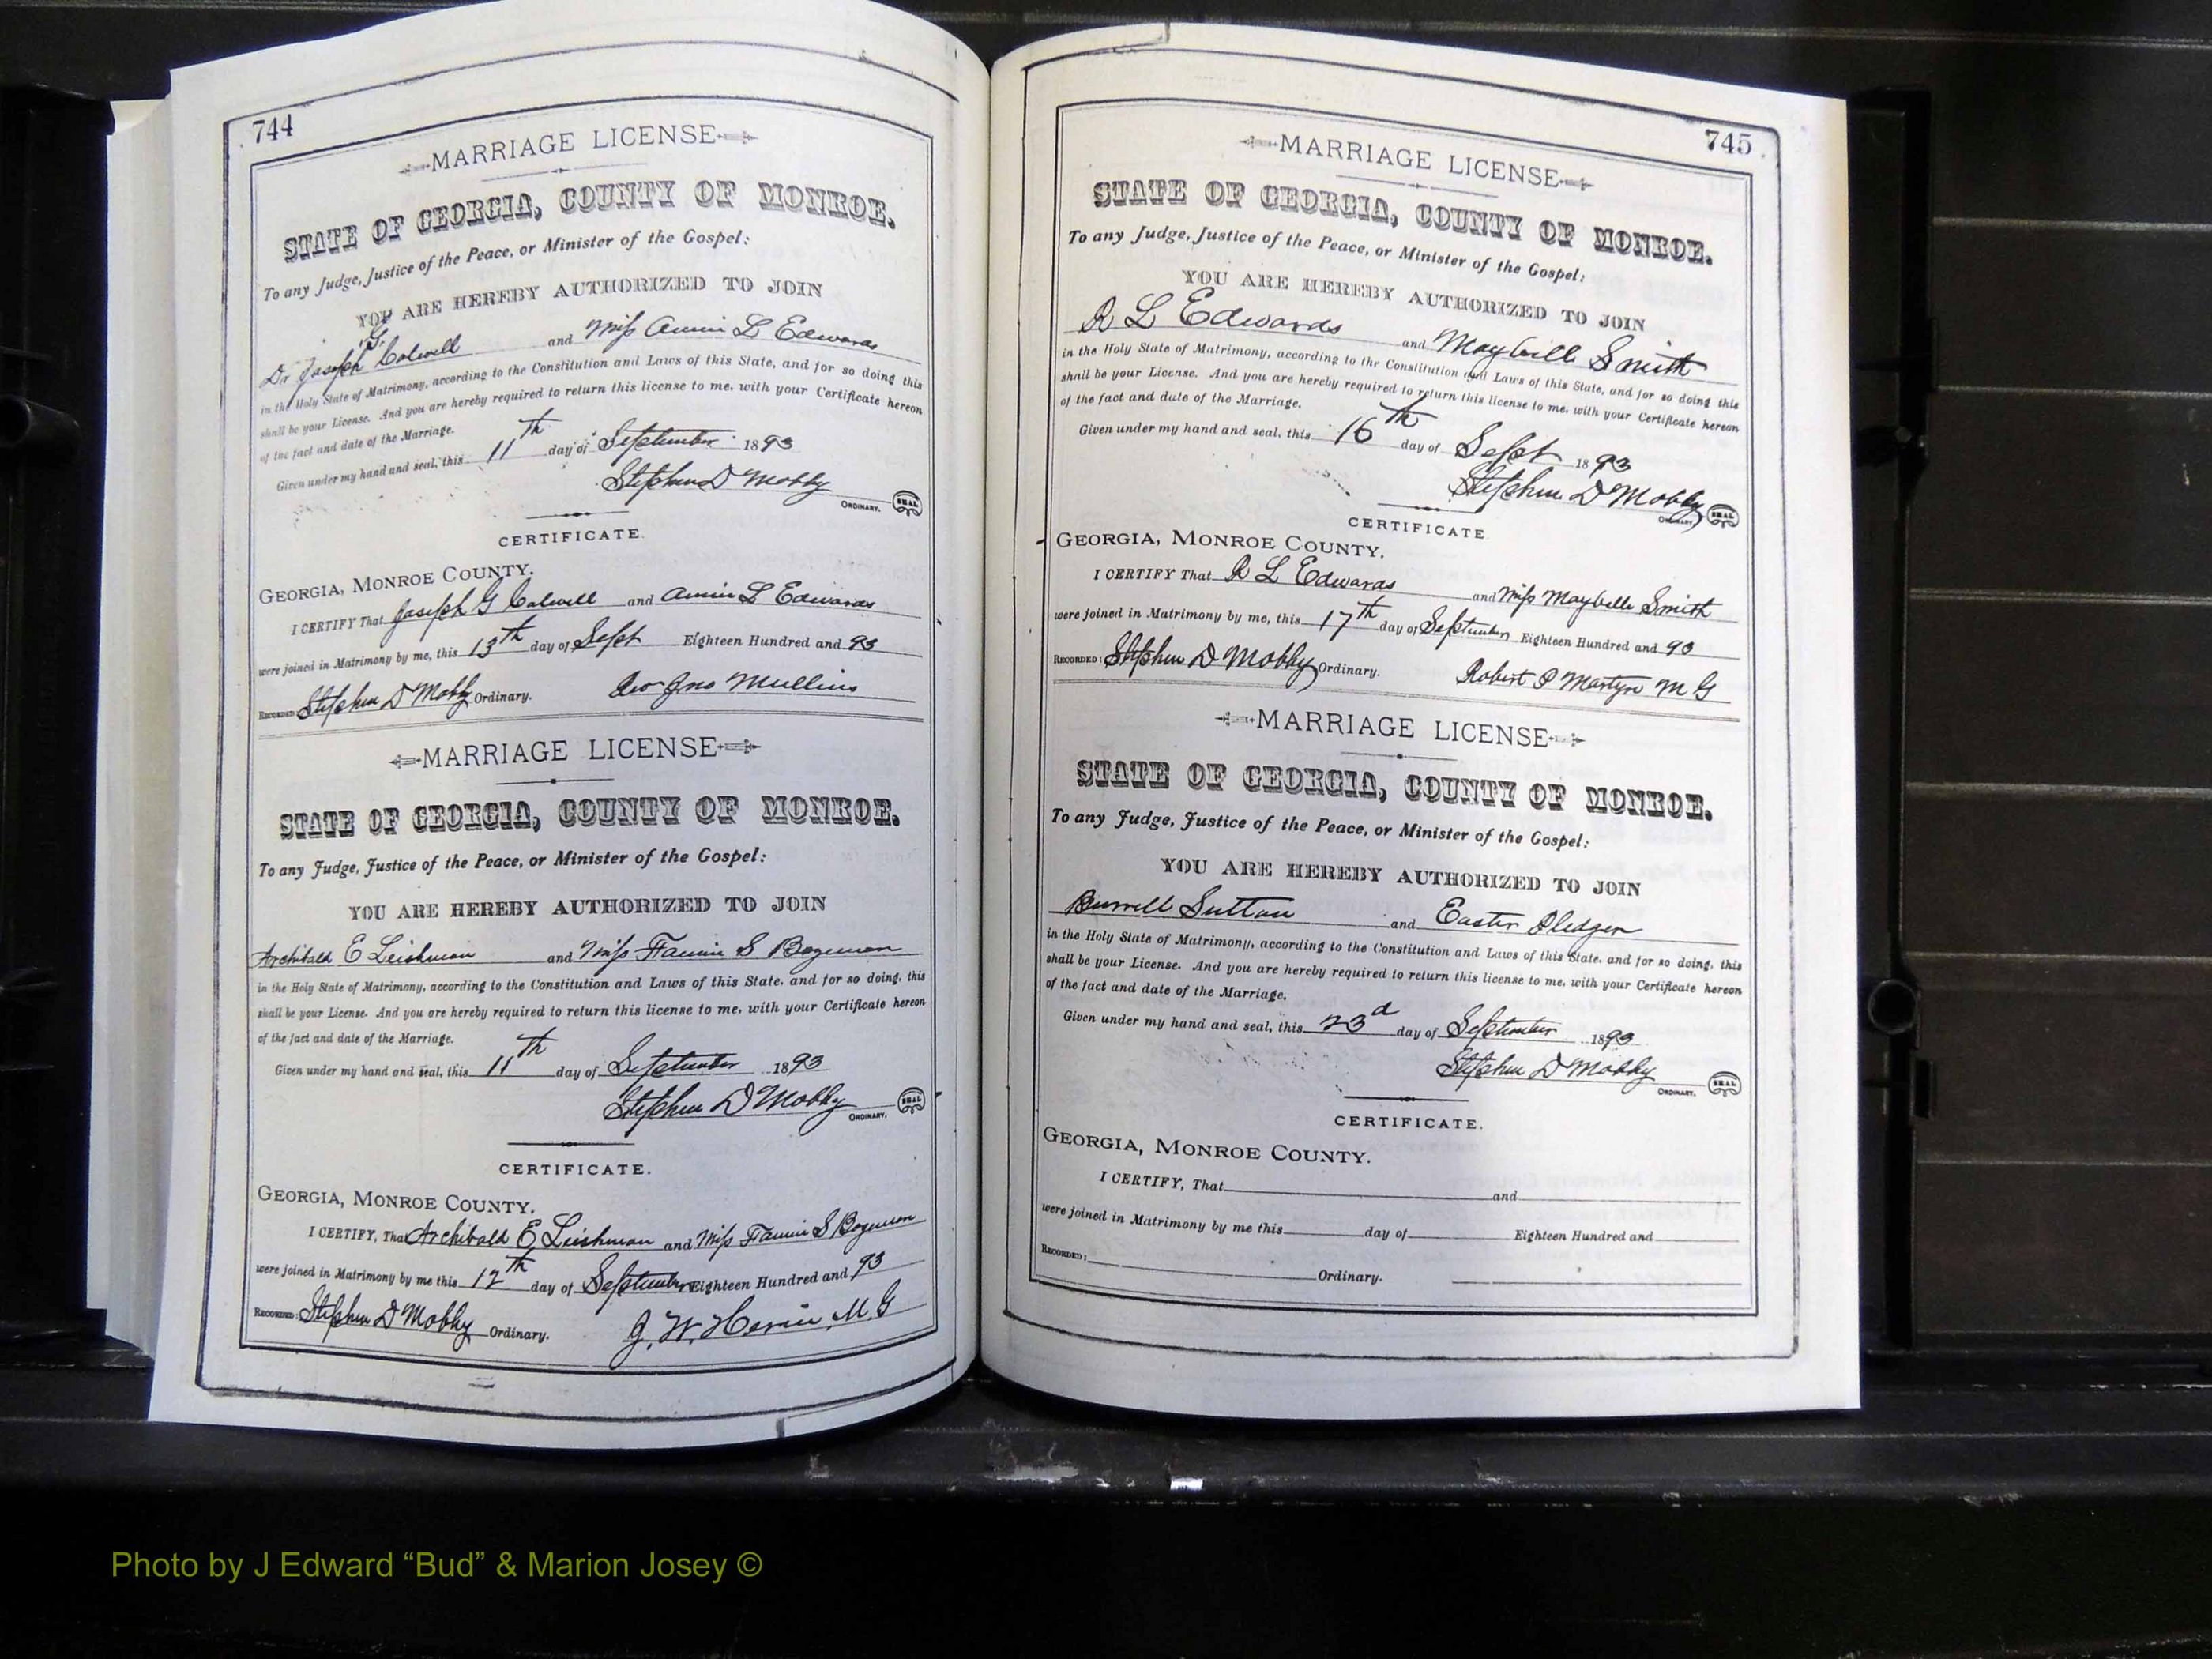 744
MARRIAGE LICENSE
STATE OF GEORGIA, COUNTY OF MONROE.
To any Judge, Justice of the Peace, or Minister of the Gospel:
YOU ARE HEREBY AUTHORIZED TO JOIN
G.
Dr Joseph Colwell and Miss Annie L Edwards
in the Holy State of Matrimony, according to the Constitution and Laws of this State, and for so doing this
shall be your License. And you are hereby required to return this license to me, with your Certificate hereon
of the fact and date of the Marriage.
Given under my hand and seal, this 11th day of September 1893
Stephen D Mobley
ORDINARY. SEAL
CERTIFICATE.
GEORGIA, MONROE COUNTY.
I CERTIFY That Joseph G Colwell and Annie L Edwards
were joined in Matrimony by me, this 13th day of Sept Eighteen Hundred and 93
RECORDED: Stephen D Mobley Ordinary. Rev Jno Mullins
MARRIAGE LICENSE
STATE OF GEORGIA, COUNTY OF MONROE.
To any Judge, Justice of the Peace, or Minister of the Gospel:
YOU ARE HEREBY AUTHORIZED TO JOIN
Archibald E Leishman and Miss Fannie S Bozeman
in the Holy State of Matrimony, according to the Constitution and Laws of this State, and for so doing, this
shall be your License. And you are hereby required to return this license to me, with your Certificate hereon
of the fact and date of the Marriage.
Given under my hand and seal, this 11th day of September 1893
Stephen D Mobley
ORDINARY. SEAL
CERTIFICATE.
GEORGIA, MONROE COUNTY.
I CERTIFY, That Archibald E Leishman and Miss Fannie S Bozeman
were joined in Matrimony by me this 12th day of September Eighteen Hundred and 93
RECORDED: Stephen D Mobley Ordinary. J. W. M.G
745
MARRIAGE LICENSE
STATE OF GEORGIA, COUNTY OF MONROE.
To any Judge, Justice of the Peace, or Minister of the Gospel:
YOU ARE HEREBY AUTHORIZED TO JOIN
R L Edwards and Maybelle Smith
in the Holy State of Matrimony, according to the Constitution and Laws of this State, and for so doing this
shall be your License. And you are hereby required to return this license to me, with your Certificate hereon
of the fact and date of the Marriage.
Given under my hand and seal, this 16th day of Sept 1893
Stephen D Mobley
ORDINARY. SEAL
CERTIFICATE
GEORGIA, MONROE COUNTY.
I CERTIFY That R L Edwards and Miss Maybelle Smith
were joined in Matrimony by me, this 17th day of September Eighteen Hundred and 93
RECORDED: Stephen D Mobley Ordinary. Robert P Martyn M G
MARRIAGE LICENSE
STATE OF GEORGIA, COUNTY OF MONROE.
To any Judge, Justice of the Peace, or Minister of the Gospel:
YOU ARE HEREBY AUTHORIZED TO JOIN
Burrell Sutton and Easter Pledger
in the Holy State of Matrimony, according to the Constitution and Laws of this State, and for so doing, this
shall be your License. And you are hereby required to return this license to me, with your Certificate hereon
of the fact and date of the Marriage.
Given under my hand and seal, this 23d day of September 1893
Stephen D Mobley
ORDINARY. SEAL
CERTIFICATE.
GEORGIA, MONROE COUNTY.
I CERTIFY, That and
were joined in Matrimony by me this day of Eighteen Hundred and
RECORDED: Ordinary.
Photo by J Edward “Bud” & Marion Josey ©